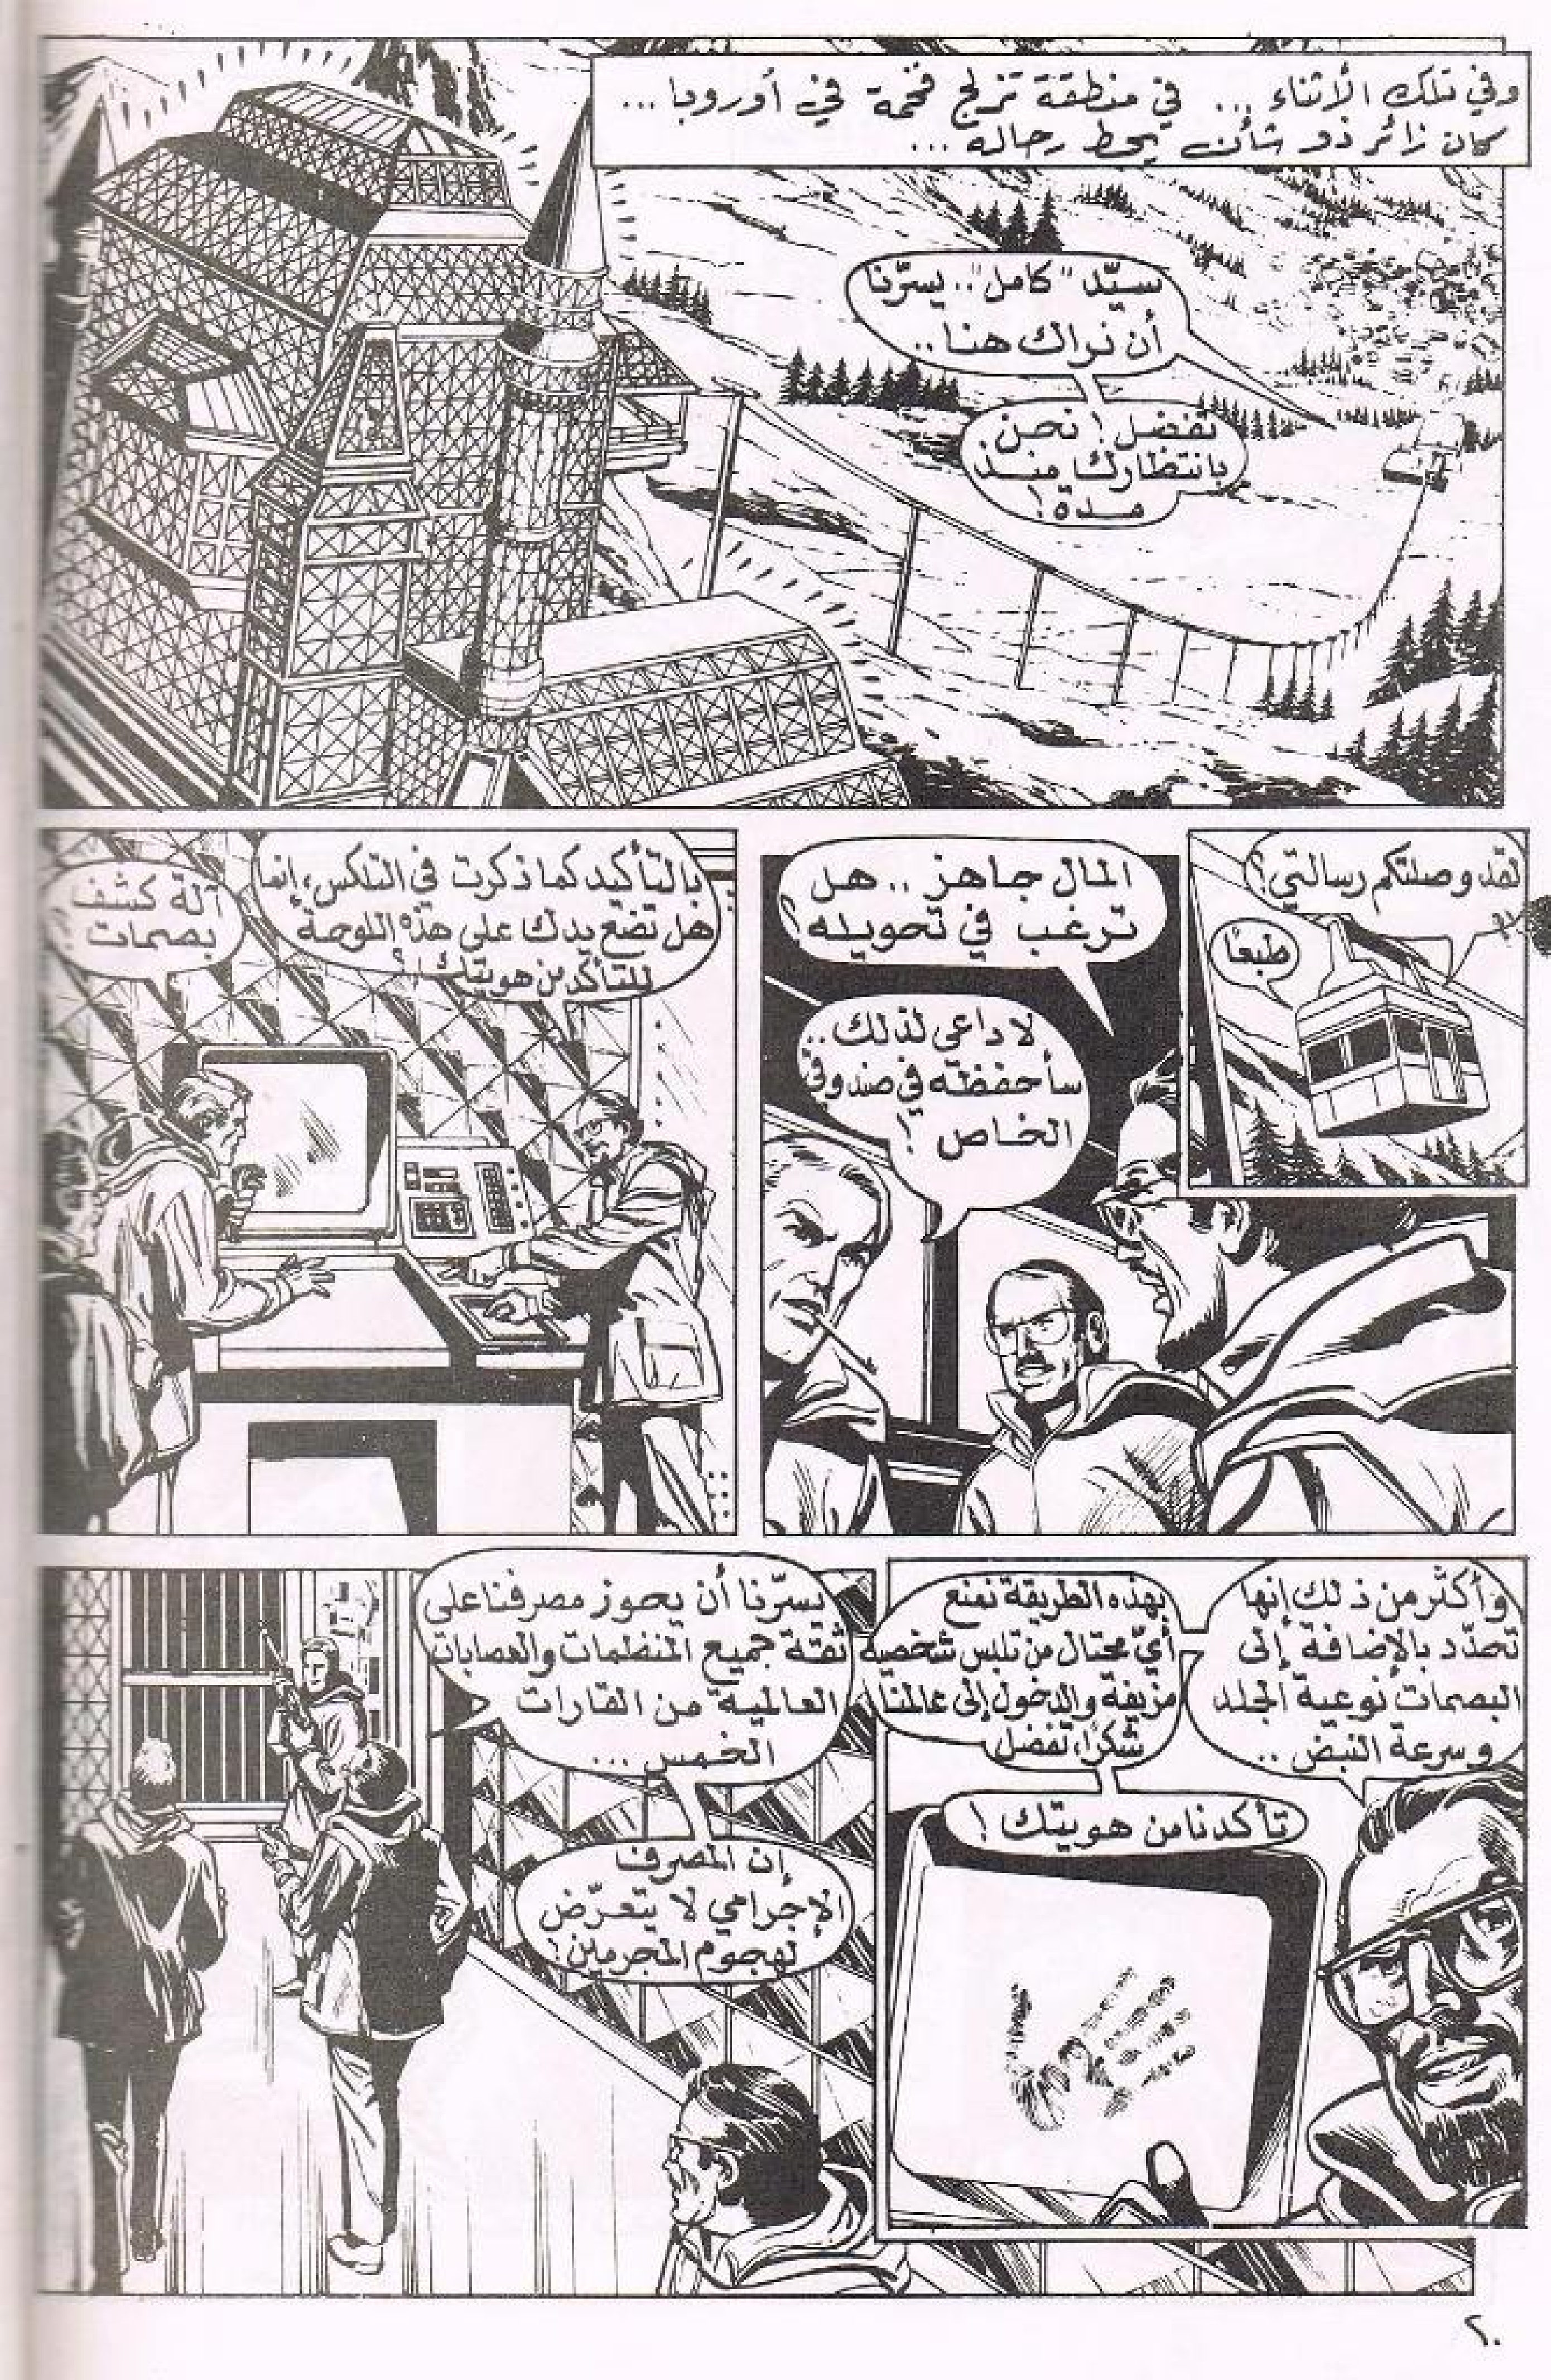 وفي تلك الأثناء ... في منطقة تزلج فخمة في أوروبا ...
كان زائر ذو شأن يحط رحاله ...
سيّد "كامل".. يسرّنا
أن نراك هنا ..
تفضل! نحن
بانتظارك منذ
مدة!
لقد وصلتكم رسالتي؟
طبعًا
المال جاهز .. هل
ترغب في تحويله؟
لا داعي لذلك ..
سأحفظه في صندوقي
الخاص !
بالتأكيد كما ذكرت في التلكس، إنما
هل تضع يدك على هذه اللوحة
للتأكد من هويتك !؟
آلة كشف
بصمات !
وأكثر من ذلك إنها
تحدّد بالإضافة إلى
البصمات نوعية الجلد
وسرعة النبض ..
بهذه الطريقة نمنع
أيّ محتال من تلبس شخصية
مزيفة والدخول إلى عالمنا
شكرًا، تفضل
تأكدنا من هويتك !
يسرّنا أن يحوز مصرفنا على
ثقة جميع المنظمات والعصابات
العالمية من القارات
الخمس ...
إن المصرف
الإجرامي لا يتعرّض
لهجوم المجرمين !
٢٠